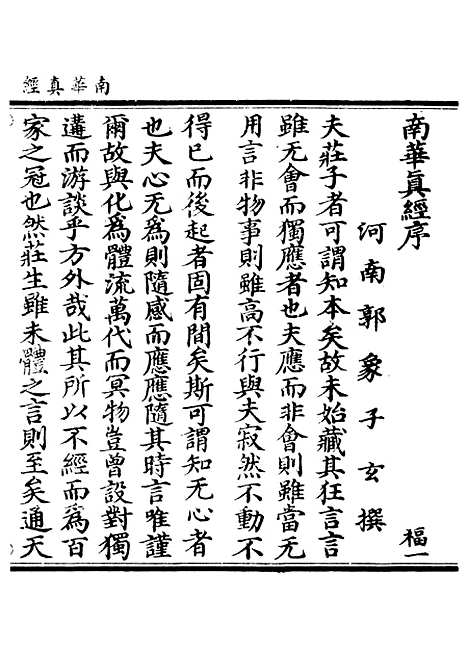 南華真經
南華眞經序　福一
河南郭象子玄撰
夫莊子者可謂知本矣故未始藏其狂言言
雖无會而獨應者也夫應而非會則雖當无
用言非物事則雖高不行與夫寂然不動不
得已而後起者固有間矣斯可謂知无心者
也夫心无爲則隨感而應應隨其時言唯謹
爾故與化爲體流萬代而冥物豈曾設對獨
遘而游談乎方外哉此其所以不經而爲百
家之冠也然莊生雖未體之言則至矣通天